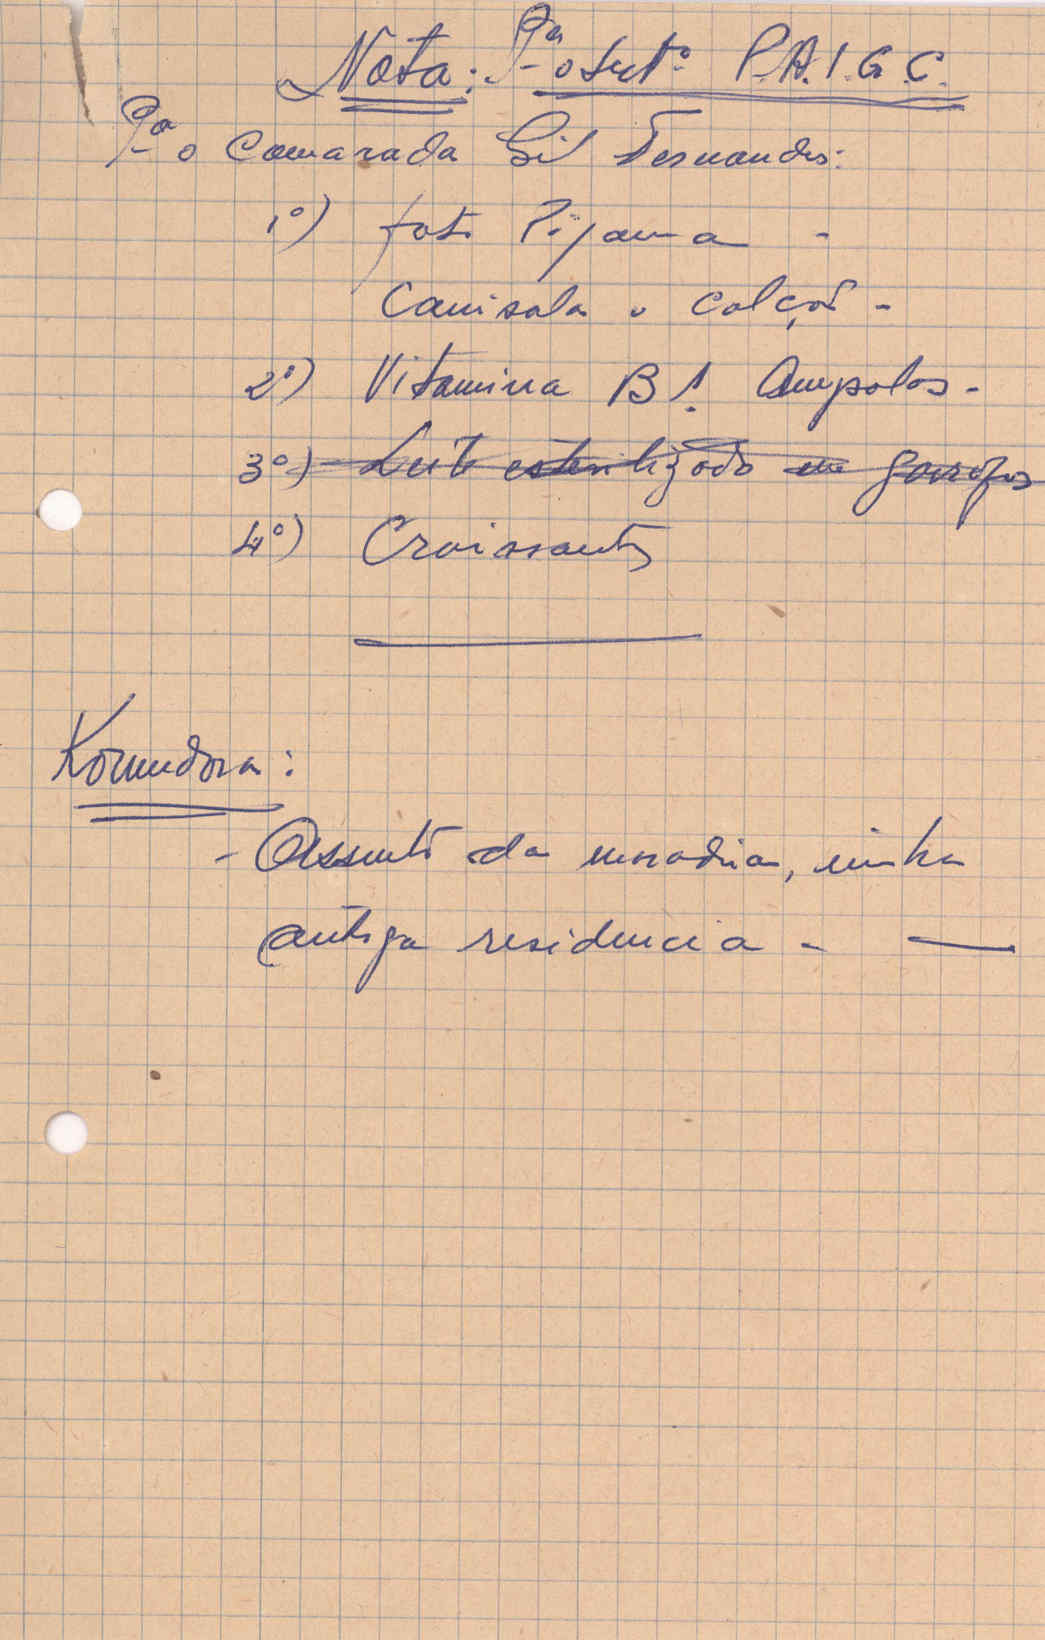 Nota: Pª o Sectº P.A.I.G.C.
Pª o Camarada Gil Fernandes:
1º) fato Pijama -
Camisola e calção -
2º) Vitamina B1. Ampolas -
3º) Leite esterilizado em garrafas
4º) Croissants
Korundora:
- Assunto da moradia, minha
antiga residencia -